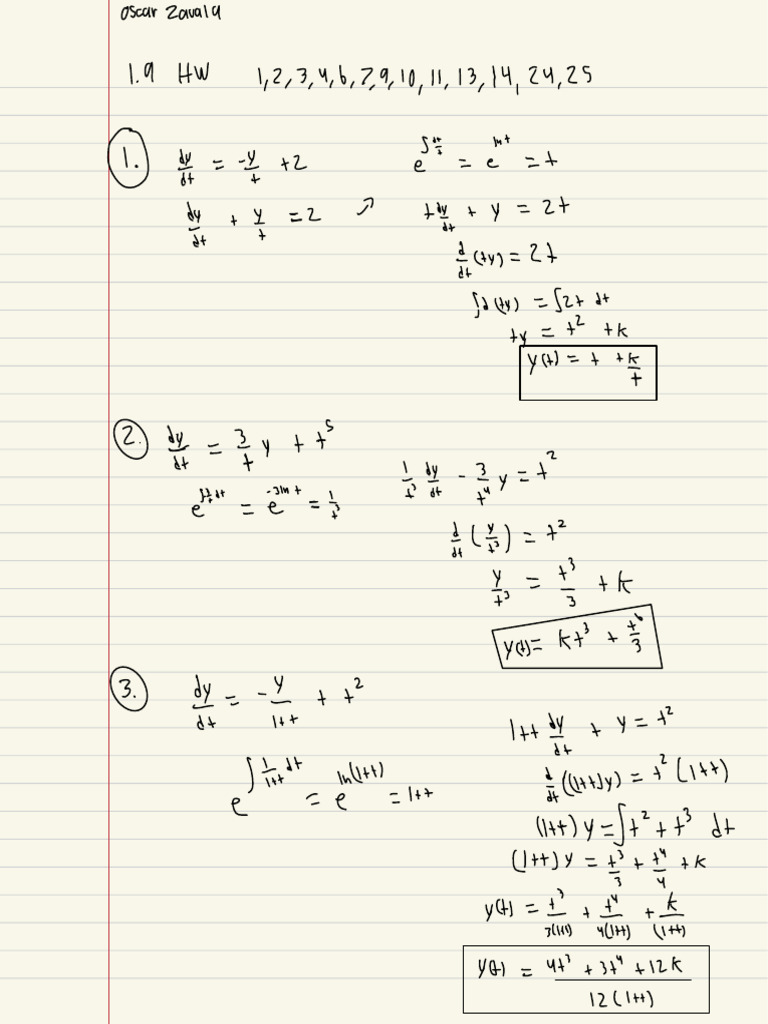 Oscar Zavala
1.9 HW 1,2,3,4,6,7,9,10,11,13,14,24,25
1.
dy/dt = -y/t + 2
dy/dt + y/t = 2
e^∫dt/t = e^ln t = t
t dy/dt + y = 2t
d/dt (ty) = 2t
∫d(ty) = ∫2t dt
ty = t² + k
y(t) = t + k/t
2.
dy/dt = 3/t y + t⁵
= e^-3ln t = 1/t³
1/t³ dy/dt - 3/t⁴ y = t²
d/dt (y/t³) = t²
y/t³ = t³/3 + k
y(t) = kt³ + t⁶/3
3.
dy/dt = -y/1+t + t²
e^∫1/1+t dt = e^ln(1+t) = 1+t
1+t dy/dt + y = t²
d/dt ((1+t)y) = t²(1+t)
(1+t)y = ∫t² + t³ dt
(1+t)y = t³/3 + t⁴/4 + k
y(t) = t³/3(1+t) + t⁴/4(1+t) + k/(1+t)
y(t) = 4t³ + 3t⁴ + 12k/12(1+t)